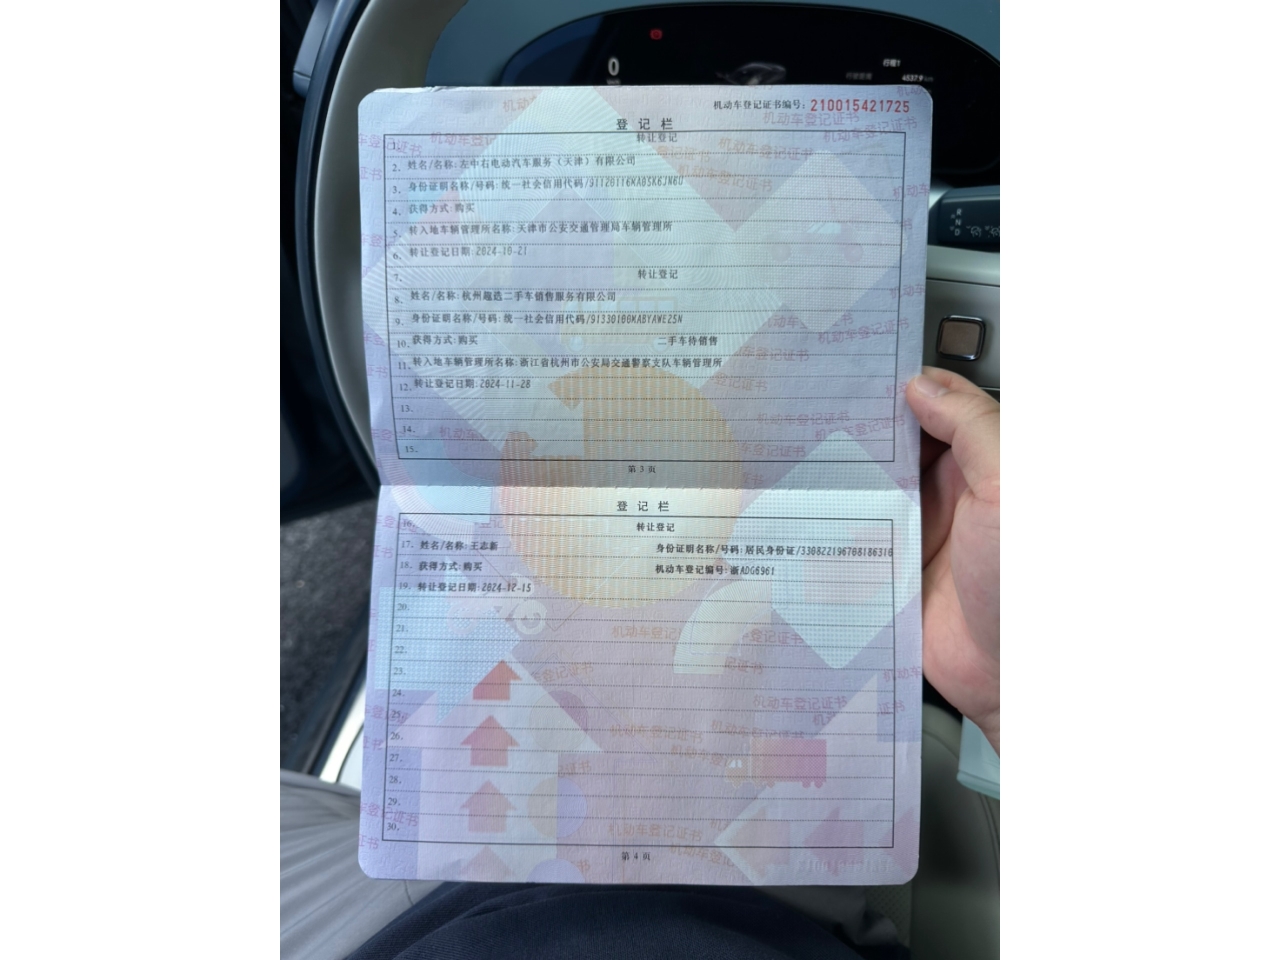 0
行程1
4537.9 km
机动车登记证书编号：210015421725
登记栏
1. 转让登记
2. 姓名/名称：左中右电动汽车服务（天津）有限公司
3. 身份证明名称/号码：统一社会信用代码/91120116MA05K6JN6U
4. 获得方式：购买
5. 转入地车辆管理所名称：天津市公安交通管理局车辆管理所
6. 转让登记日期：2024-10-21
7. 转让登记
8. 姓名/名称：杭州趣选二手车销售服务有限公司
9. 身份证明名称/号码：统一社会信用代码/91330100MABYAWE25N
10. 获得方式：购买 二手车待销售
11. 转入地车辆管理所名称：浙江省杭州市公安局交通警察支队车辆管理所
12. 转让登记日期：2024-11-28
13.
14.
15.
第 3 页
登记栏
16. 转让登记
17. 姓名/名称：王志新 身份证明名称/号码：居民身份证/330822196708186316
18. 获得方式：购买 机动车登记编号：浙ADG6961
19. 转让登记日期：2024-12-15
20.
21.
22.
23.
24.
25.
26.
27.
28.
29.
30.
第 4 页
R
N
D